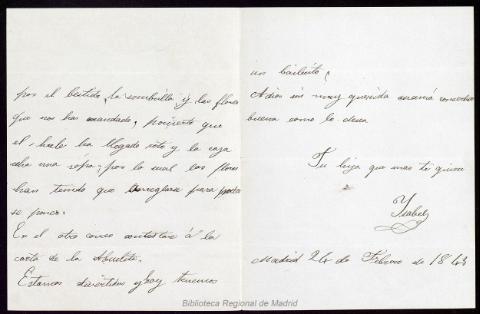 por el bestido, la sombrilla y las flores
que nos has mandado, porcierto que
el baul ha llegado roto y la caja
una sopa; por lo cual las flores
han tenido que arreglarse para
se poner.
En el otro correo contestare á la
carta de la Abuelita.
Estamos divertidos y hoy tenemos
un bailecito,
A dios mi muy querida mamá
buena como lo desea
Tu hija que mas te quiere
Ysabel
Madrid 24 de Febrero de 1843
Biblioteca Regional de Madrid